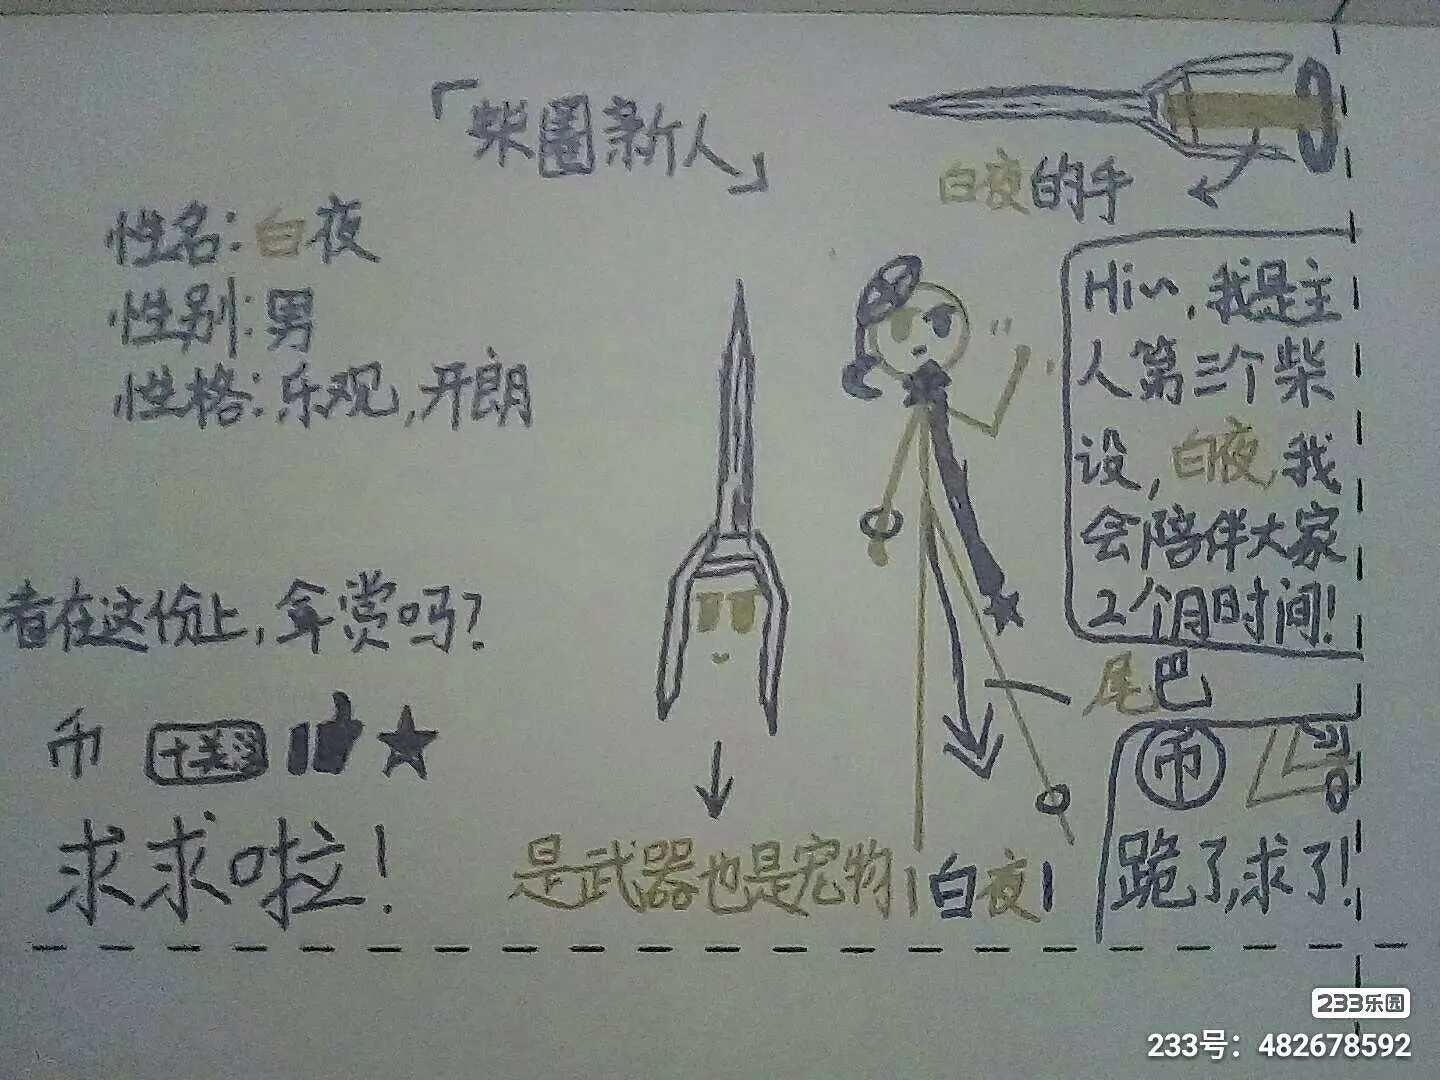 「柴圈新人」
性名：白夜
性别：男
性格：乐观，开朗
白夜的手
Hi~，我是主
人第三个柴
设，白夜，我
会陪伴大家
2个月时间！
尾巴
看在这份上，拿赏吗？
币
求求啦！
是武器也是宠物
|白夜|
币
跪了，求了！
233乐园
233号：482678592